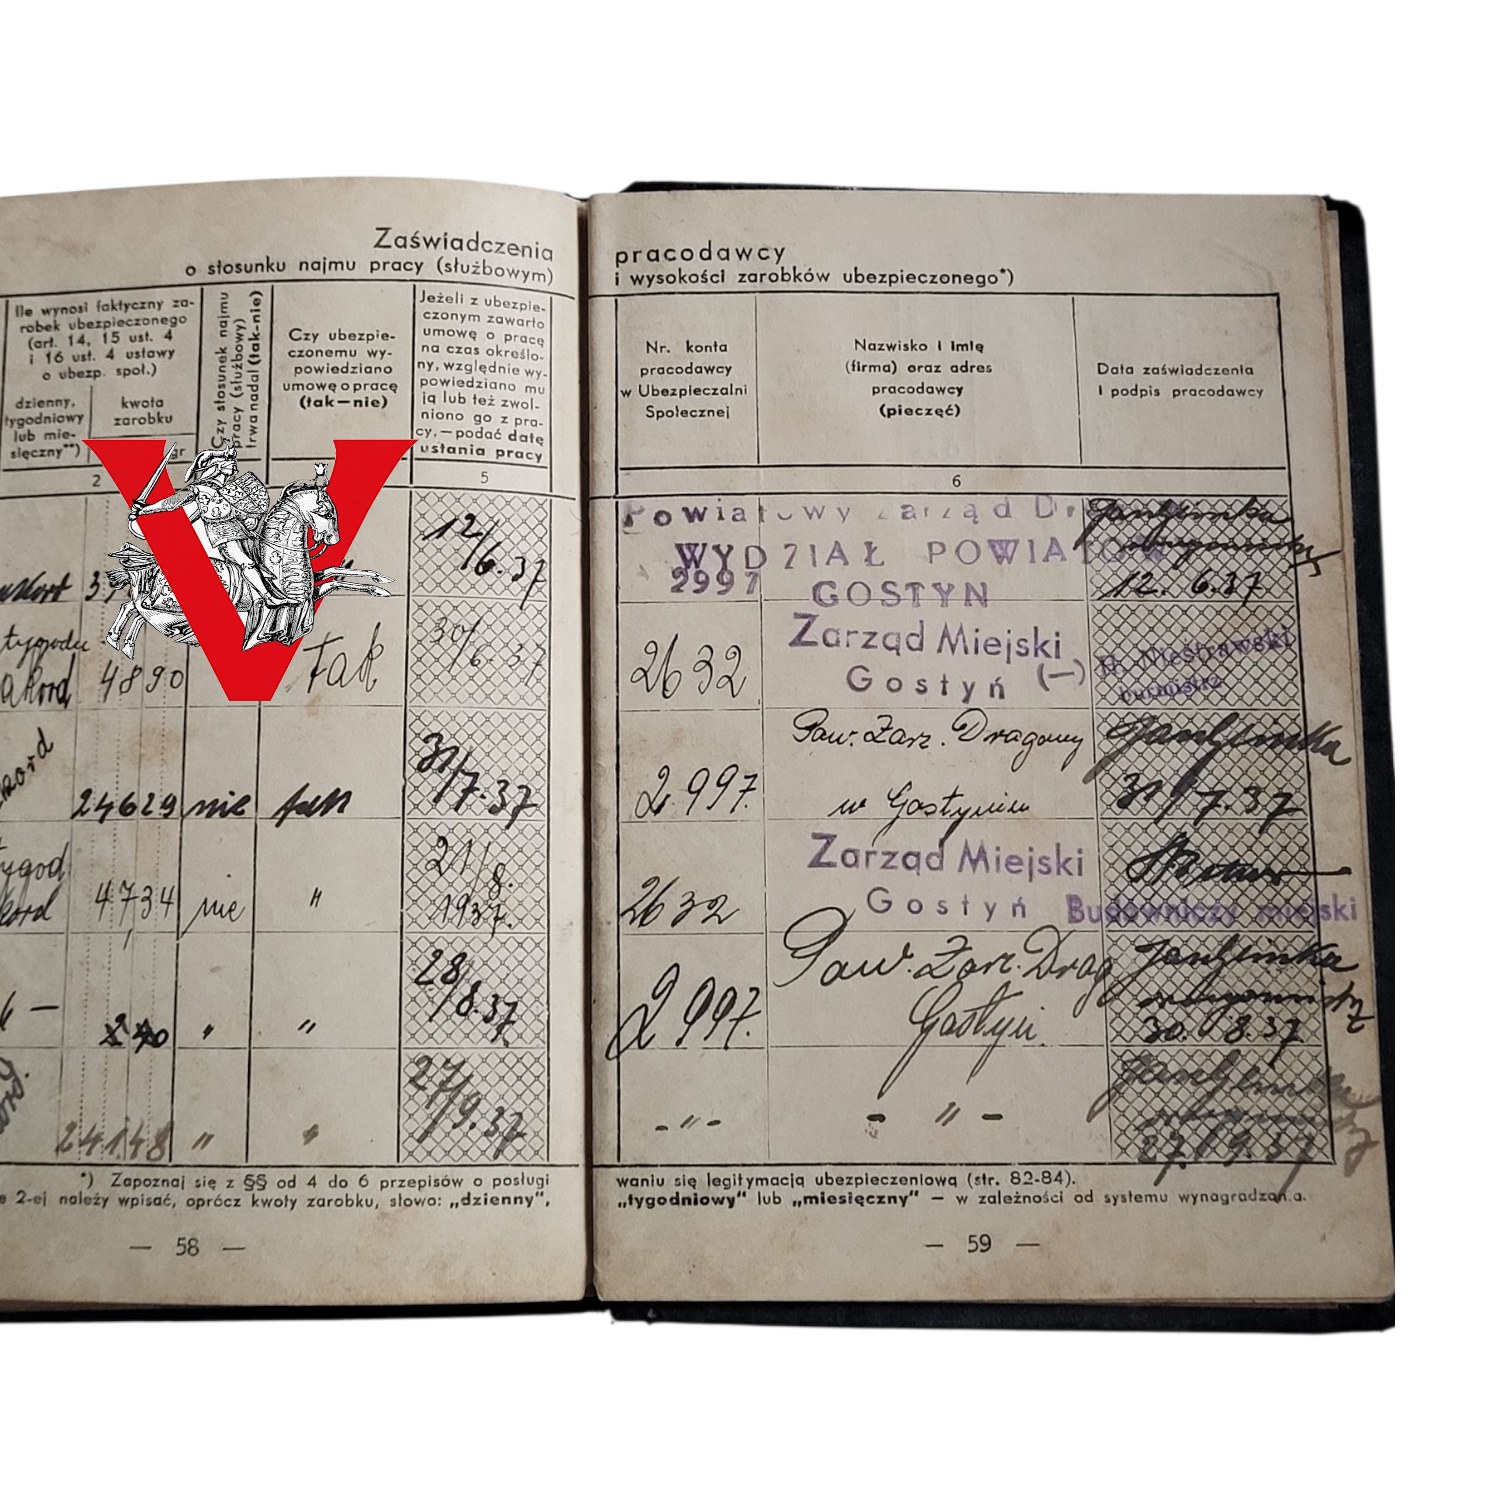 Zaświadczenia
o stosunku najmu pracy (służbowym)
Ile wynosi faktyczny za-
robek ubezpieczonego
(art. 14, 15 ust. 4
i 16 ust. 4 ustawy
o ubezp. społ.)
dzienny,
tygodniowy
lub mie-
sięczny**)
kwota
zarobku
gr
Czy stosunek najmu
pracy (służbowy)
trwa nadal (tak—nie)
Czy ubezpie-
czonemu wy-
powiedziano
umowę o pracę
(tak—nie)
Jeżeli z ubezpie-
czonym zawarto
umowę o pracę
na czas określo-
ny, względnie wy-
powiedziano mu
ją lub też zwol-
niono go z pra-
cy, — podać datę
ustania pracy
2
5
12/6.37
tygodn
akord 4890 tak 30/6.37
24629 nie tak 31/7.37
tygod
kord 4734 nie " 21/8.
1937.
" " 28/8.37
24148 " " 27/9.37
*) Zapoznaj się z §§ od 4 do 6 przepisów o posługi
e 2-ej należy wpisać, oprócz kwoty zarobku, słowo: „dzienny",
— 58 —
pracodawcy
i wysokości zarobków ubezpieczonego*)
Nr. konta
pracodawcy
w Ubezpieczalni
Społecznej
Nazwisko i imię
(firma) oraz adres
pracodawcy
(pieczęć)
Data zaświadczenia
i podpis pracodawcy
6
Powiatowy Zarząd Dr
WYDZIAŁ POWIATOW
2997 GOSTYN
12. 6.37
2632 Zarząd Miejski
Gostyń (—)
burmistrz
Pow. Zarz. Drogowy
2.997. w Gostyniu 31/7.37
Zarząd Miejski
2632 Gostyń Budowniczy miejski
Pow. Zarz. Drog
2997. Gostyń 30. 8.37
- " - - " -
27. 9.37
waniu się legitymacją ubezpieczeniową (str. 82-84).
„tygodniowy" lub „miesięczny" — w zależności od systemu wynagradzania.
— 59 —